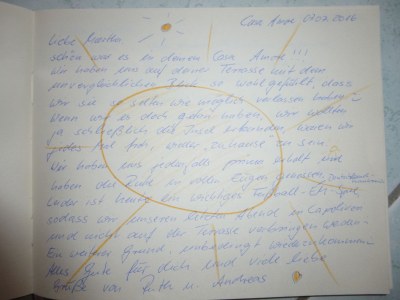 Casa Amore 07.07.2016
Liebe Martha
schön war es in deinem Casa Amore!!!
Wir haben uns auf deiner Terrasse mit dem
unvergleichlichen Blick so wohl gefühlt, dass
wir sie so selten wie möglich verlassen
Wenn wir es doch getan haben, wir wollten
ja schließlich die Insel erkunden, waren wir
jedes Mal froh, wieder "zuhause" zu sein.
Wir haben uns jedenfalls prima erholt und
haben die Ruhe in vollen Zügen genossen.
Leider ist heute ein wichtiges Fußball-EM-Spiel
sodass wir unseren letzten Abend in
und nicht auf der Terrasse verbringen werden.
Ein weiterer Grund, unbedingt wiederzukommen.
Alles Gute für dich und viele liebe
Grüße von Ruth u. Andreas